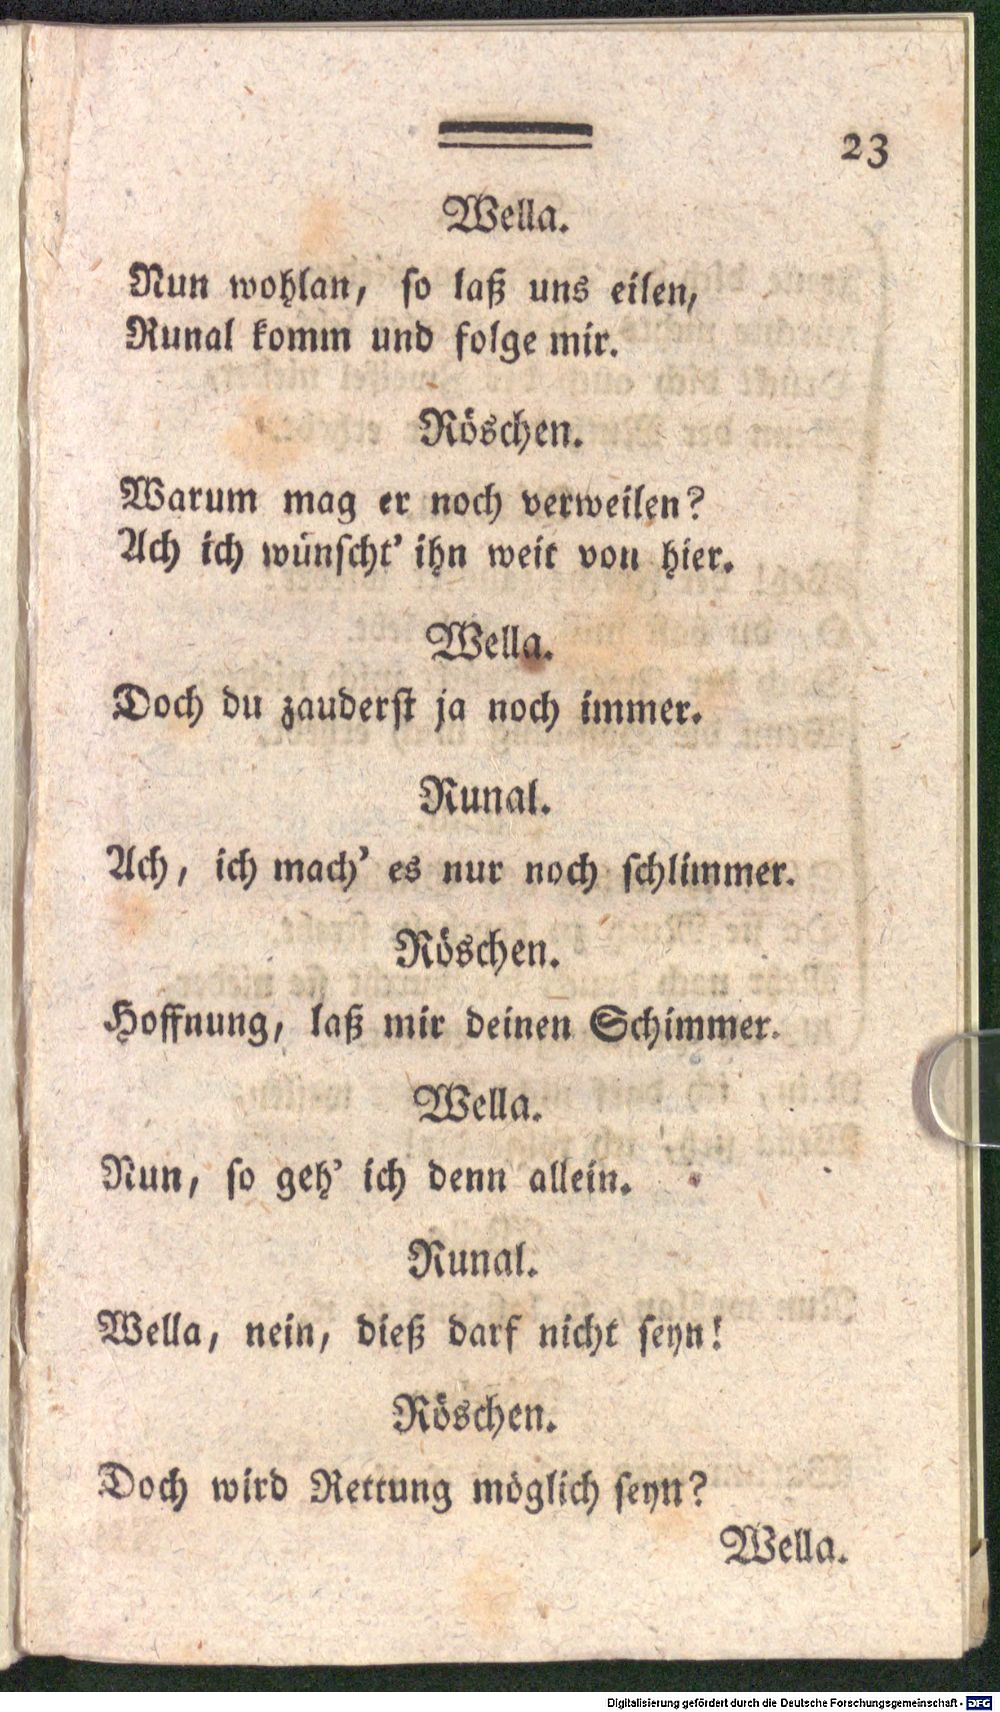 23
Wella.
Nun wohlan, so laß uns eilen,
Runal komm und folge mir.
Röschen.
Warum mag er noch verweilen?
Ach ich wünscht' ihn weit von hier.
Wella.
Doch du zauderst ja noch immer.
Runal.
Ach, ich mach' es nur noch schlimmer.
Röschen.
Hoffnung, laß mir deinen Schimmer.
Wella.
Nun, so geh' ich denn allein.
Runal.
Wella, nein, dieß darf nicht seyn!
Röschen.
Doch wird Rettung möglich seyn?
Wella.
Digitalisierung gefördert durch die Deutsche Forschungsgemeinschaft - DFG